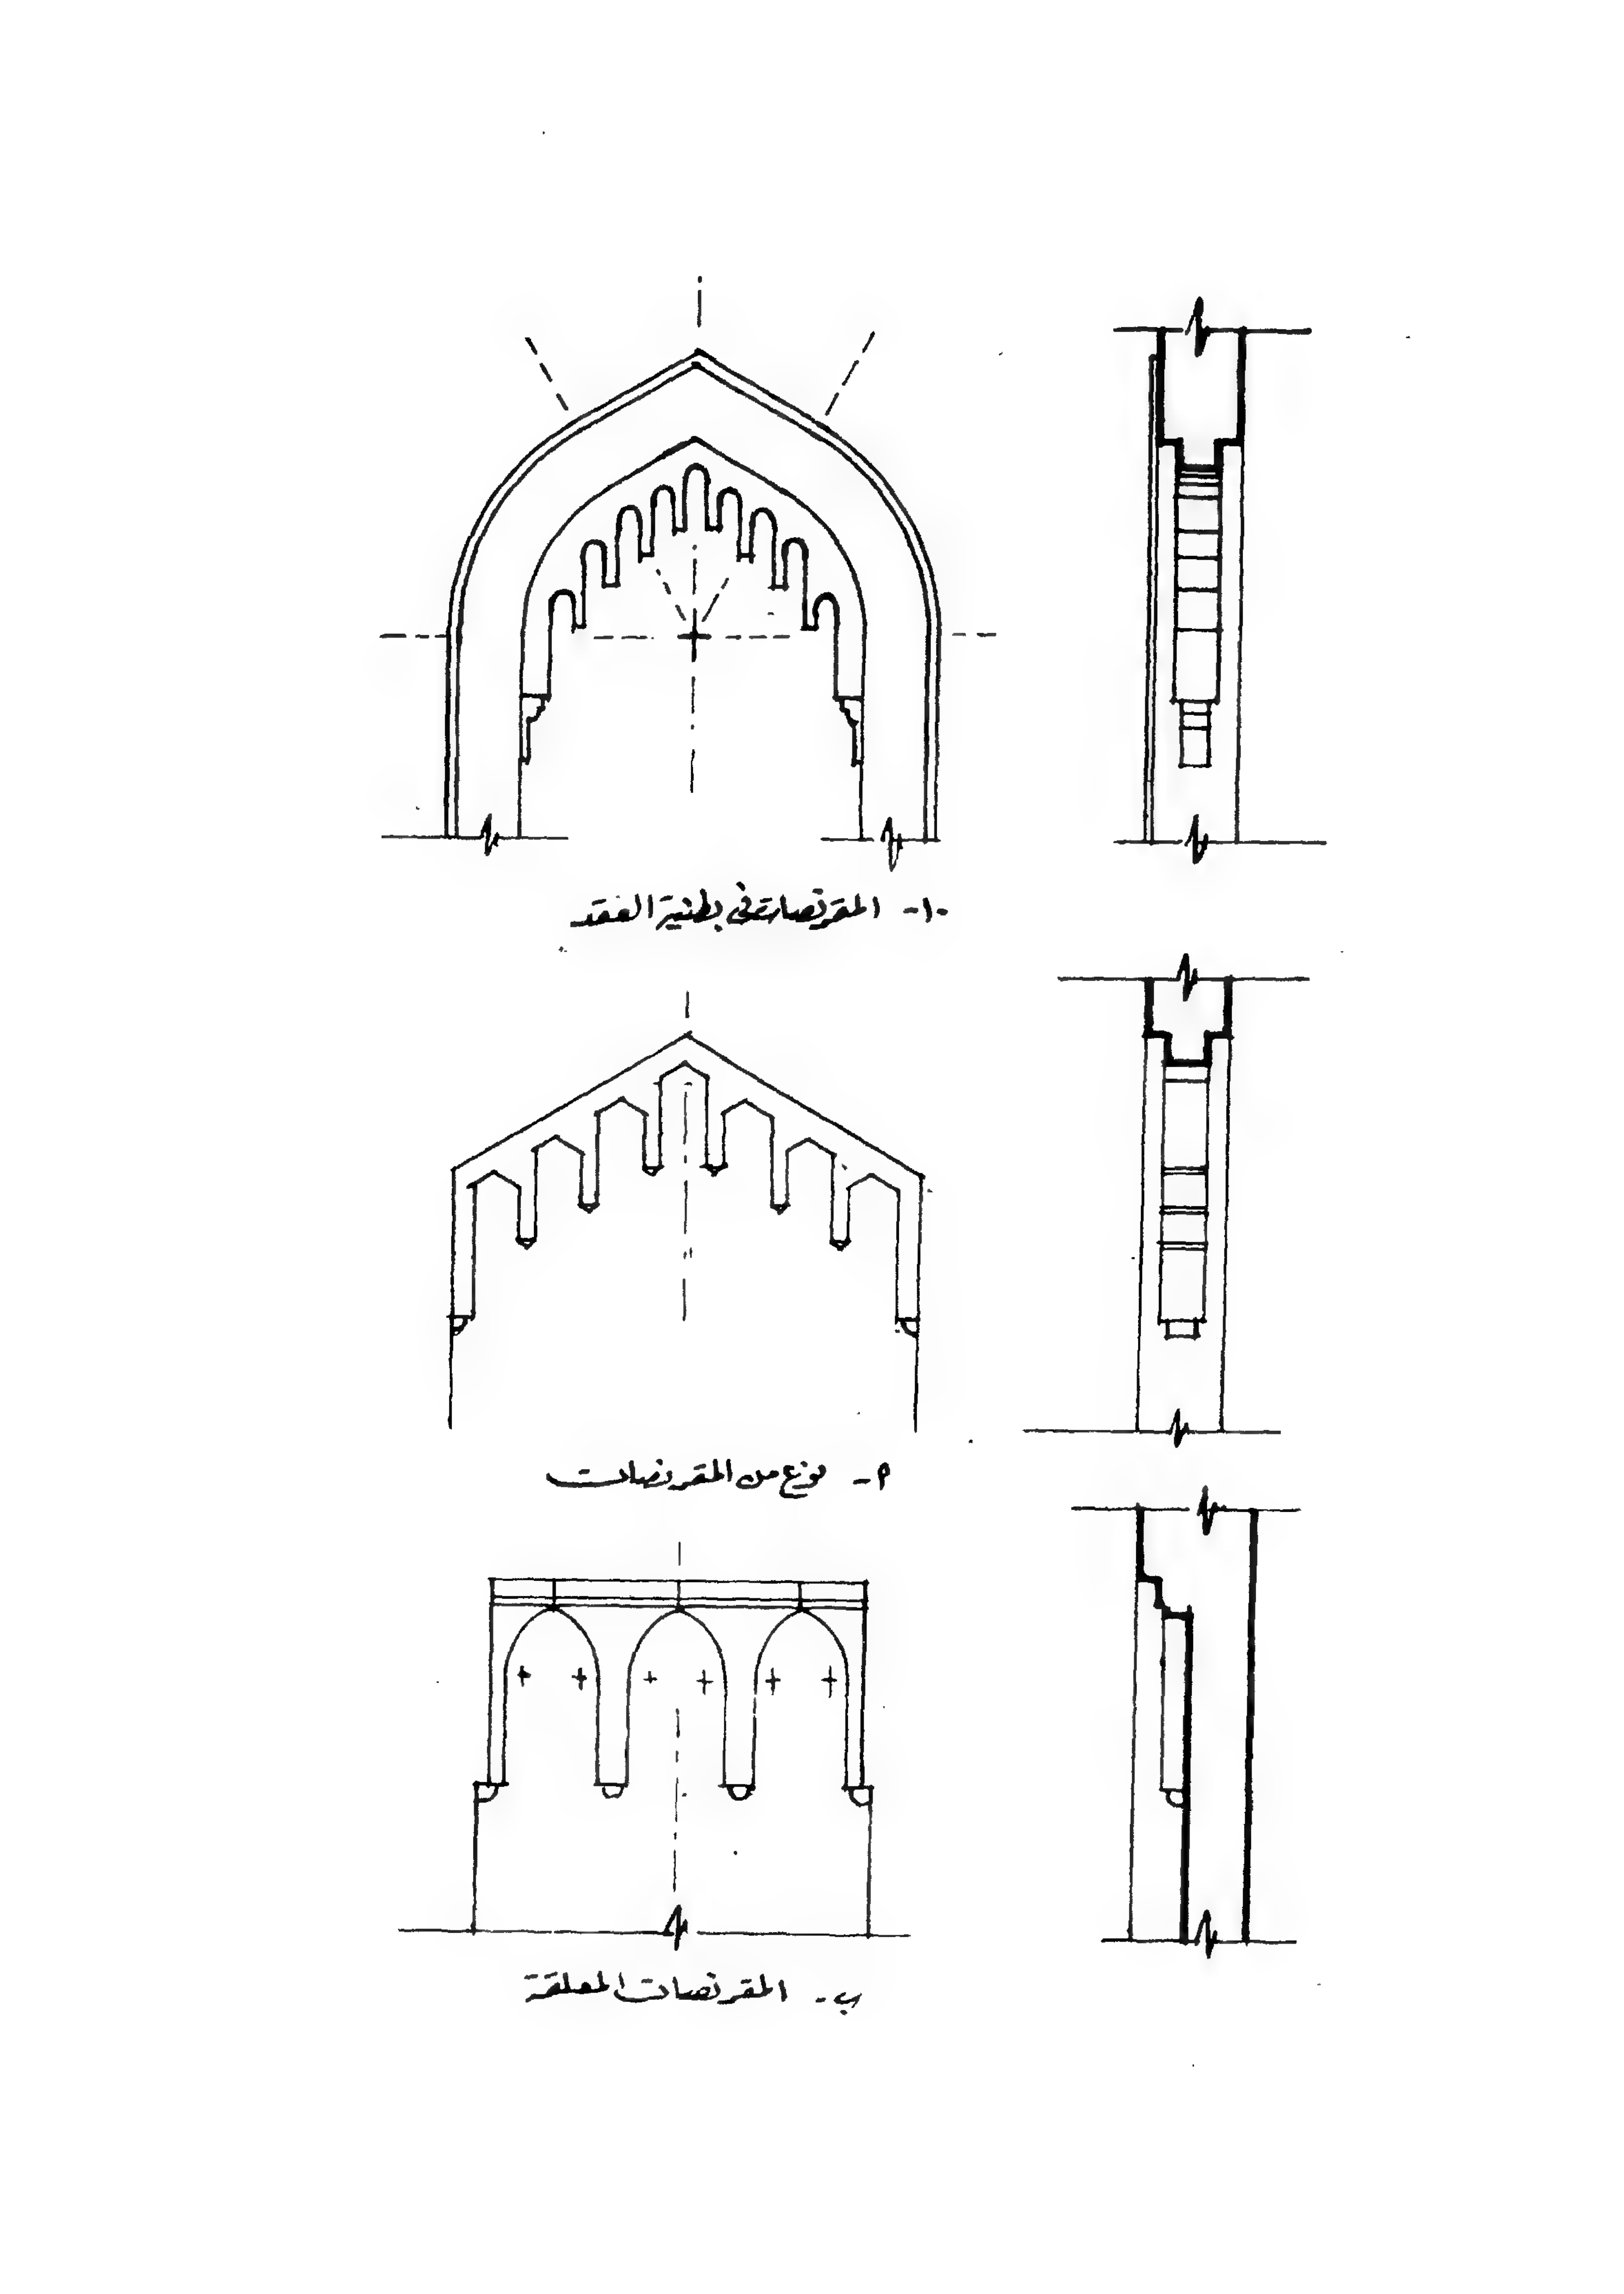 -١- المقرنصات في بطنية العقد
م - نوع من المقرنصات
ب - المقرنصات المعلقة